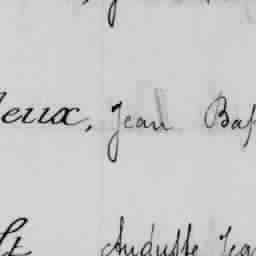 eux, Jean Bap
lt Auguste Jea